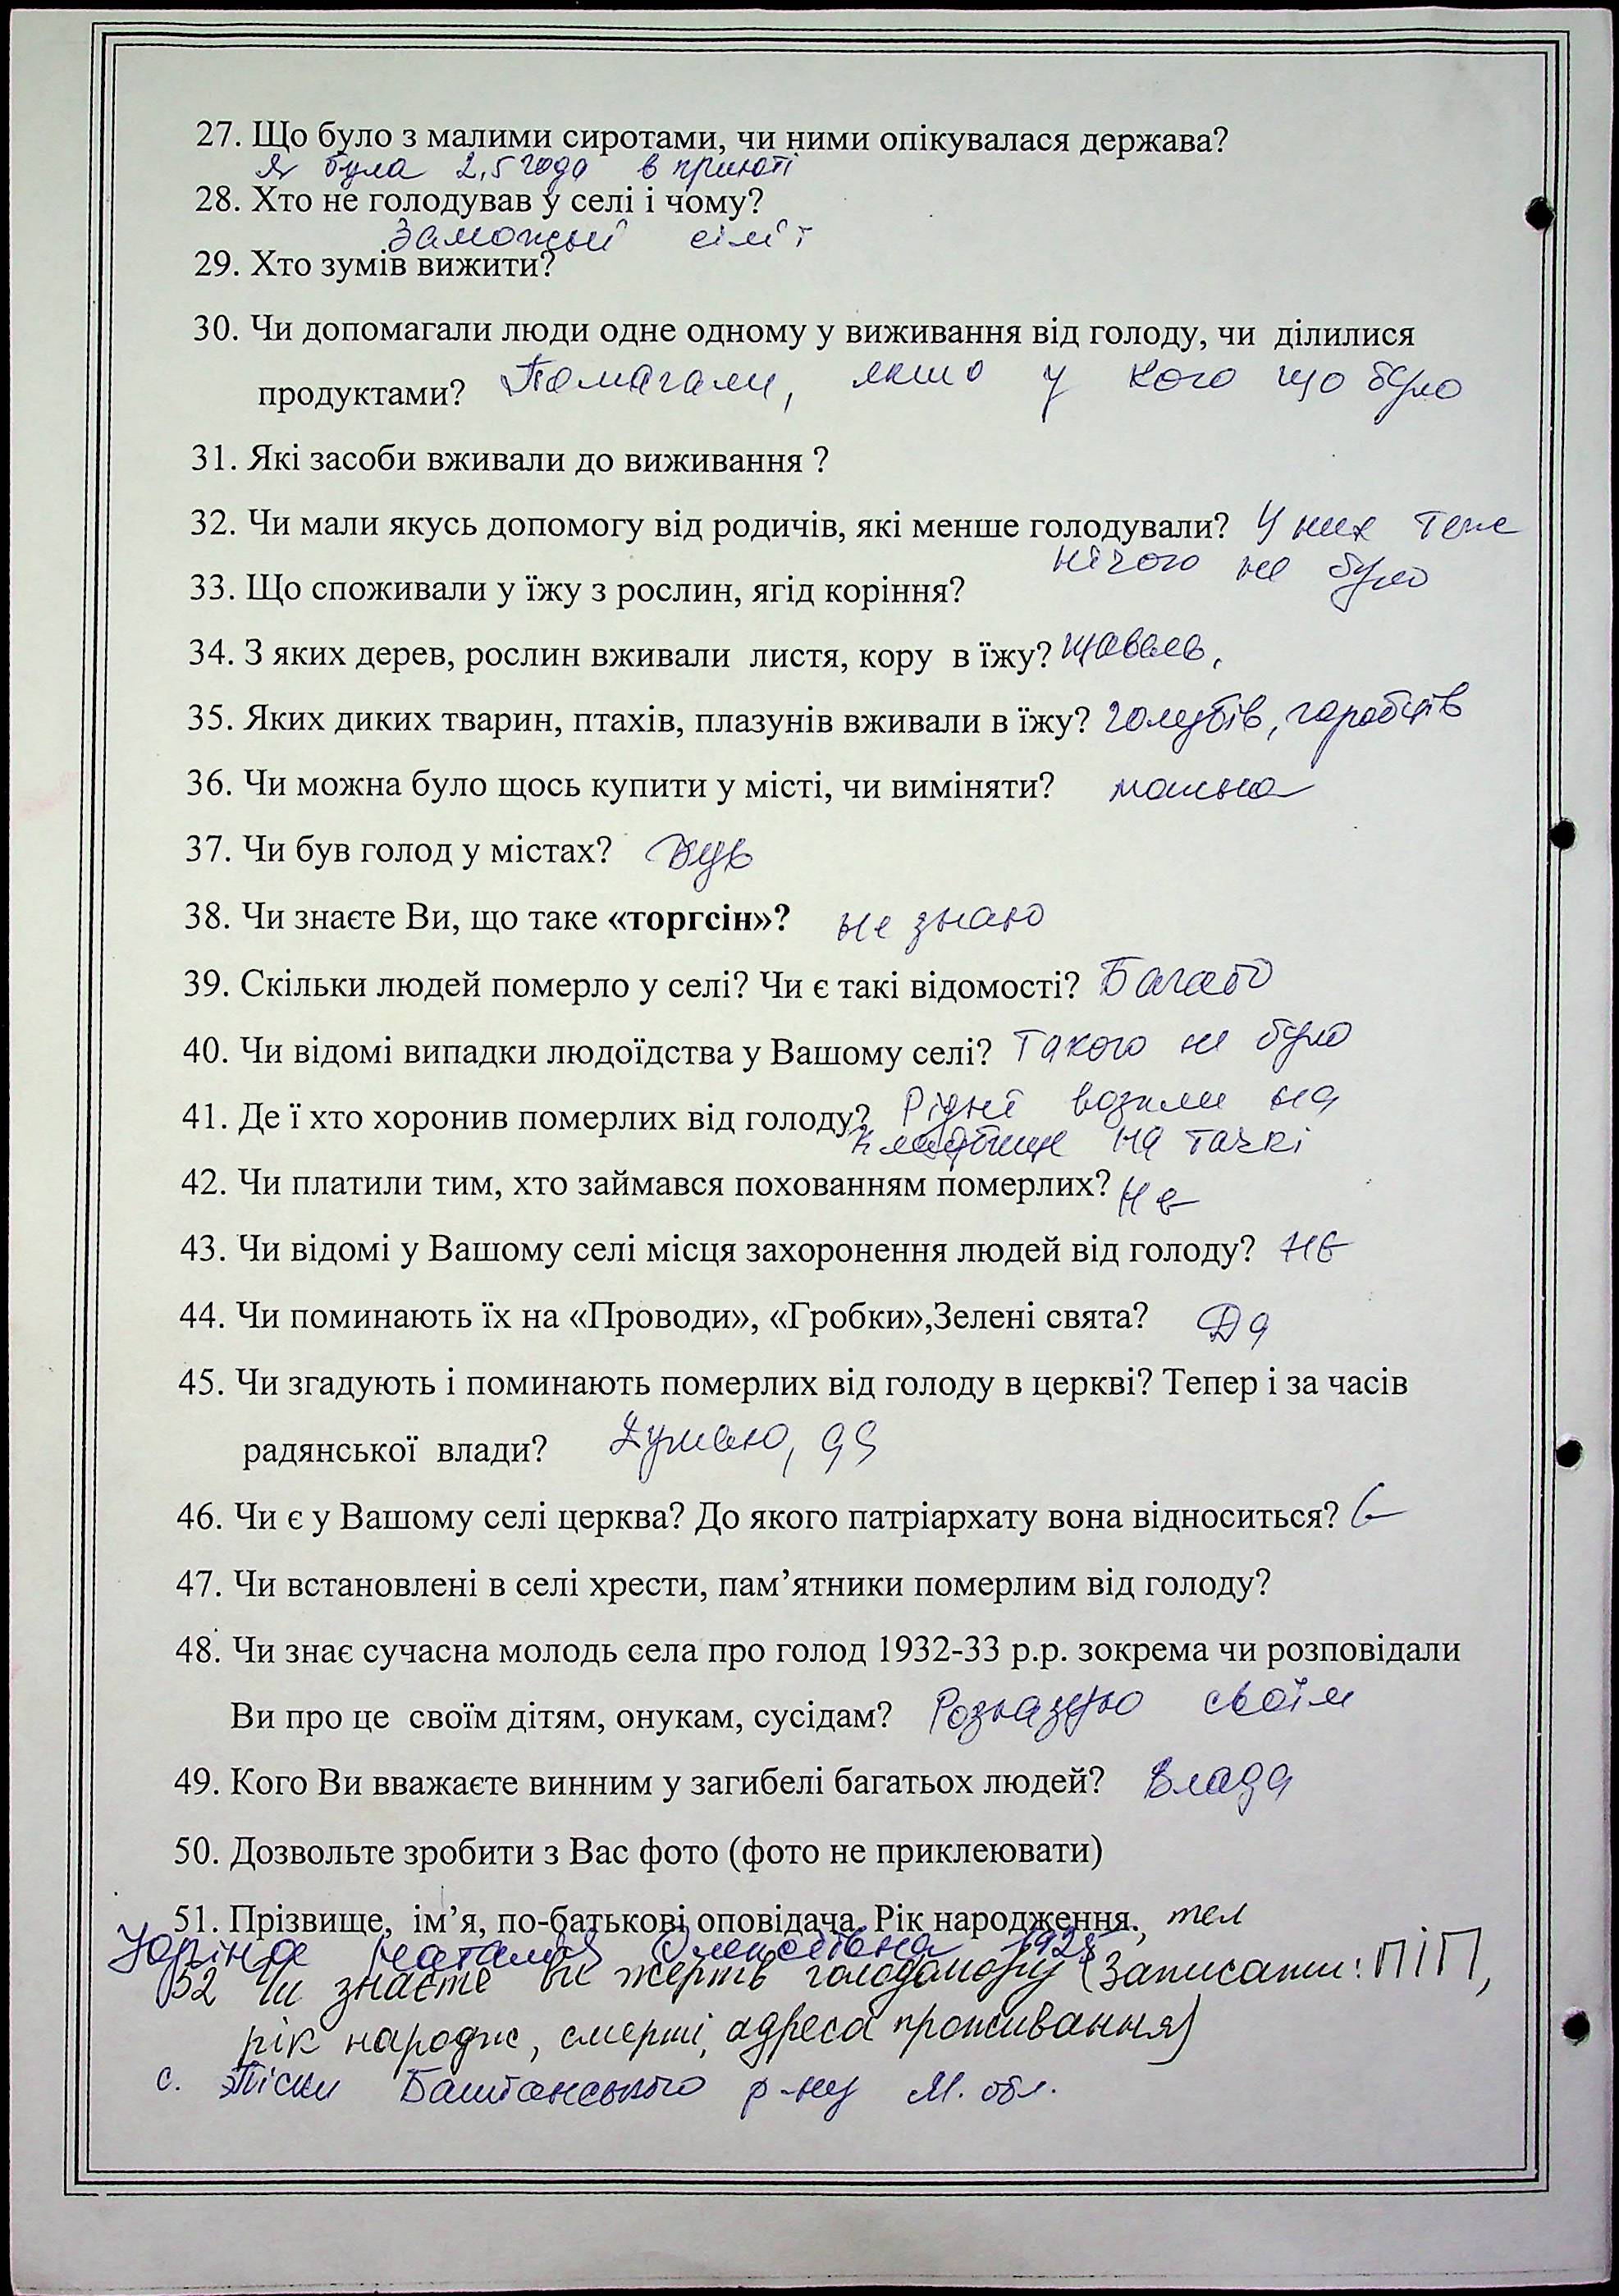 27. Що було з малими сиротами, чи ними опікувалася держава?
Я була 2,5 года в приюті
28. Хто не голодував у селі і чому?
Заможні сім'ї
29. Хто зумів вижити?
30. Чи допомагали люди одне одному у виживання від голоду, чи ділилися
продуктами? Помагали, якшо у кого що було
31. Які засоби вживали до виживання ?
32. Чи мали якусь допомогу від родичів, які менше голодували? У них теж
нічого не було
33. Що споживали у їжу з рослин, ягід коріння?
34. З яких дерев, рослин вживали листя, кору в їжу? щавель,
35. Яких диких тварин, птахів, плазунів вживали в їжу? голубів, горобців
36. Чи можна було щось купити у місті, чи виміняти? можна
37. Чи був голод у містах? був
38. Чи знаєте Ви, що таке «торгсін»? не знаю
39. Скільки людей померло у селі? Чи є такі відомості? Багато
40. Чи відомі випадки людоїдства у Вашому селі? Такого не було
41. Де ї хто хоронив померлих від голоду? Рідні возили на
кладбище на тачкі
42. Чи платили тим, хто займався похованням померлих? Нє
43. Чи відомі у Вашому селі місця захоронення людей від голоду? нє
44. Чи поминають їх на «Проводи», «Гробки»,Зелені свята? Да
45. Чи згадують і поминають померлих від голоду в церкві? Тепер і за часів
радянської влади? Думаю, да
46. Чи є у Вашому селі церква? До якого патріархату вона відноситься? Є
47. Чи встановлені в селі хрести, пам’ятники померлим від голоду?
48. Чи знає сучасна молодь села про голод 1932-33 р.р. зокрема чи розповідали
Ви про це своїм дітям, онукам, сусідам? своїм
49. Кого Ви вважаєте винним у загибелі багатьох людей? Влада
50. Дозвольте зробити з Вас фото (фото не приклеювати)
51. Прізвище, ім’я, по-батькові оповідача. Рік народження., тел
Юріна Наталія Олексіївна 1928
52 Чи знаєте ви жертв голодомору (Записати: ПІП,
рік народж, смерті, адреса проживання)
с. Піски Баштанського р-ну М. обл.